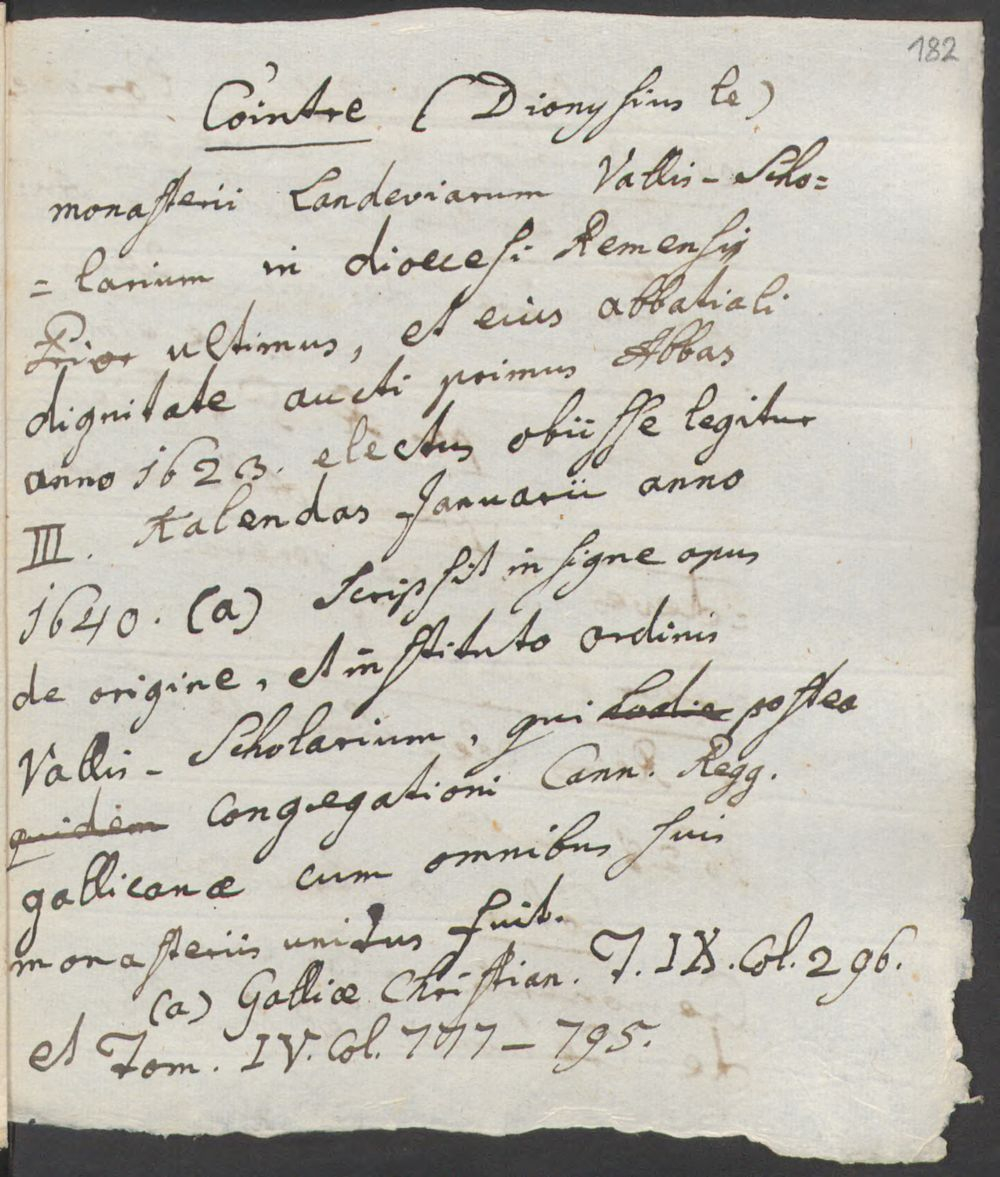 182
Cointre (Dionysius le)
monasterii Landeviarum Vallis- Scho=
= larium in diœcesi Remensi
Prior ultimus, et eius abbatiali
dignitate aucti primus Abbas
anno 1623. electus obiisse legitur
III. Kalendas Januarii anno
1640. (a) Scripsit insigne opus
de origine, et instituto ordinis
Vallis- Scholarium, qui hodie postea
quidem congregationi Cann. Regg.
gallicanæ cum omnibus suis
monasteriis unitus fuit.
(a) Galliæ Christian. T. IX. Col. 296.
et Tom. IV. Col. 777 – 795.